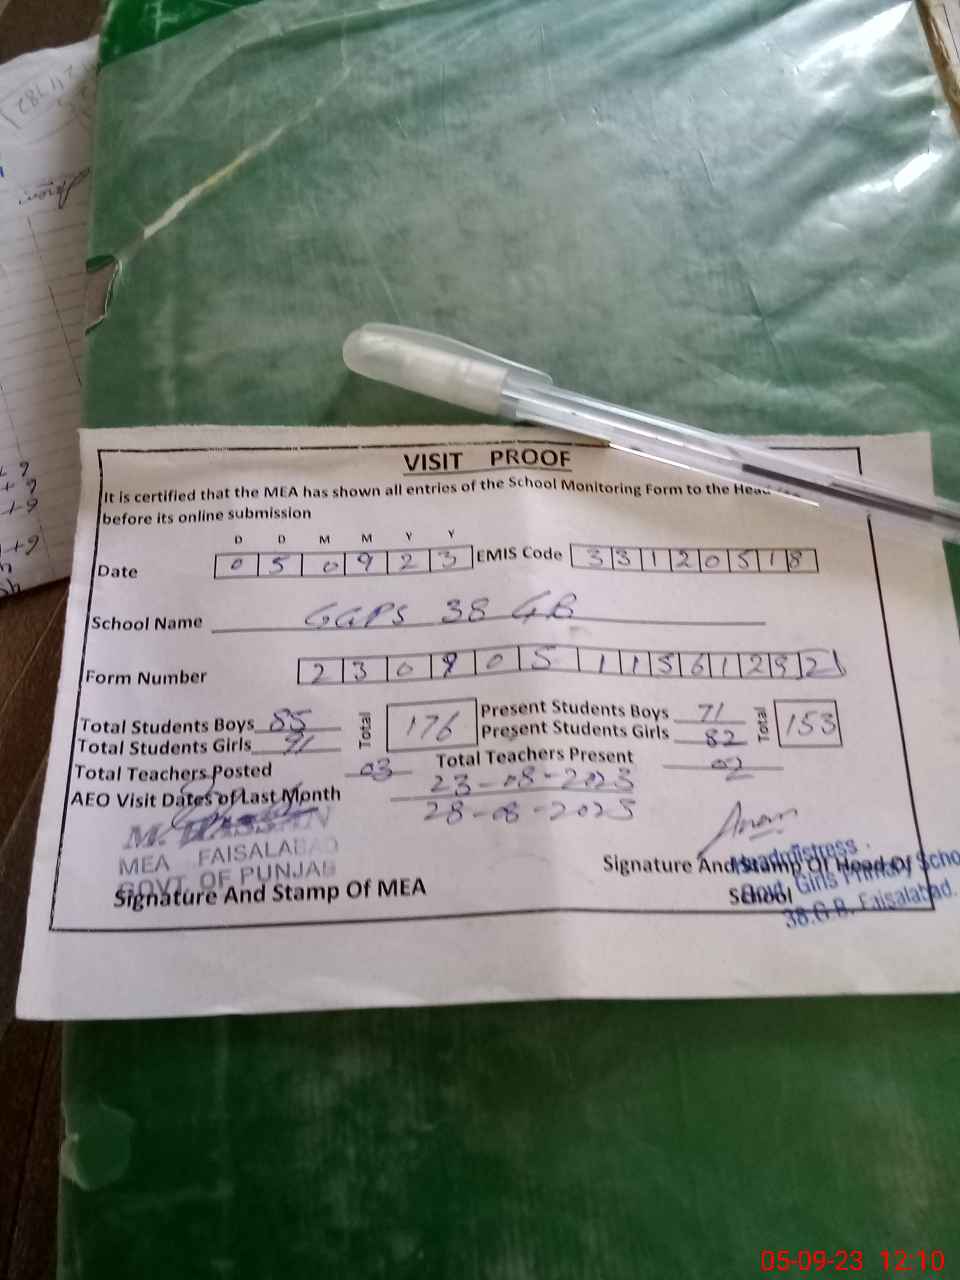 VISIT PROOF
It is certified that the MEA has shown all entries of the School Monitoring Form to the Head
before its online submission
D D M M Y Y
Date 0 5 0 9 2 3 EMIS Code 3 3 1 2 0 5 1 8
School Name GGPS 38 GB
Form Number 2 3 0 9 0 5 1 1 5 6 1 2 9 2
Total Students Boys 85 Total 176 Present Students Boys 71 Total 153
Total Students Girls 91 Present Students Girls 82
Total Teachers Posted 03 Total Teachers Present 02
AEO Visit Dates of Last Month 23-08-2023
28-08-2023
MEA FAISALABAD
GOVT. OF PUNJAB
Signature And Stamp Of MEA
Signature And Stamp Of Head Of
School
Headmistress
Govt. Girls Primary School
38.G.B. Faisalabad.
05-09-23 12:10